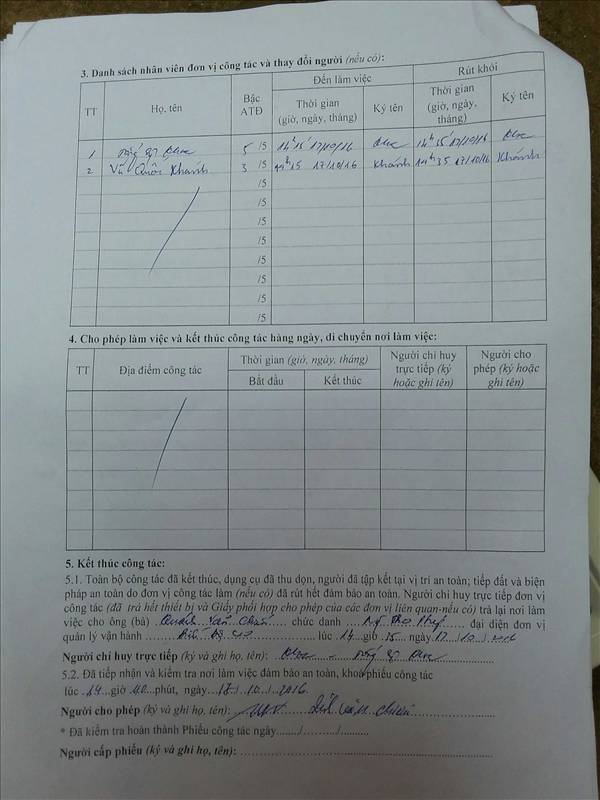 3. Danh sách nhân viên đơn vị công tác và thay đổi người (nếu có):
TT Họ, tên Bậc ATĐ Đến làm việc Rút khỏi
Thời gian (giờ, ngày, tháng) Ký tên Thời gian (giờ, ngày, tháng) Ký tên
1 5 /5 14h15 17/10/16 14h35 17/10/16
2 Vũ Quốc Khánh 3 /5 14h15 17/10/16 Khánh 14h35 17/10/16 Khánh
/5
/5
/5
/5
/5
/5
/5
/5
4. Cho phép làm việc và kết thúc công tác hàng ngày, di chuyển nơi làm việc:
TT Địa điểm công tác Thời gian (giờ, ngày, tháng) Người chỉ huy trực tiếp (ký hoặc ghi tên) Người cho phép (ký hoặc ghi tên)
Bắt đầu Kết thúc
5. Kết thúc công tác:
5.1. Toàn bộ công tác đã kết thúc, dụng cụ đã thu dọn, người đã tập kết tại vị trí an toàn; tiếp đất và biện
pháp an toàn do đơn vị công tác làm (nếu có) đã rút hết đảm bảo an toàn. Người chỉ huy trực tiếp đơn vị
công tác (đã trả hết thiết bị và Giấy phối hợp cho phép của các đơn vị liên quan-nếu có) trả lại nơi làm
việc cho ông (bà) chức danh đại diện đơn vị
quản lý vận hành lúc 14 giờ 35 ngày 17/10/2016
Người chỉ huy trực tiếp (ký và ghi họ, tên):
5.2. Đã tiếp nhận và kiểm tra nơi làm việc đảm bảo an toàn, khoá phiếu công tác
lúc 14 giờ 40 phút, ngày 17/10/2016
Người cho phép (ký và ghi họ, tên):
* Đã kiểm tra hoàn thành Phiếu công tác ngày......../........../..........
Người cấp phiếu (ký và ghi họ, tên):